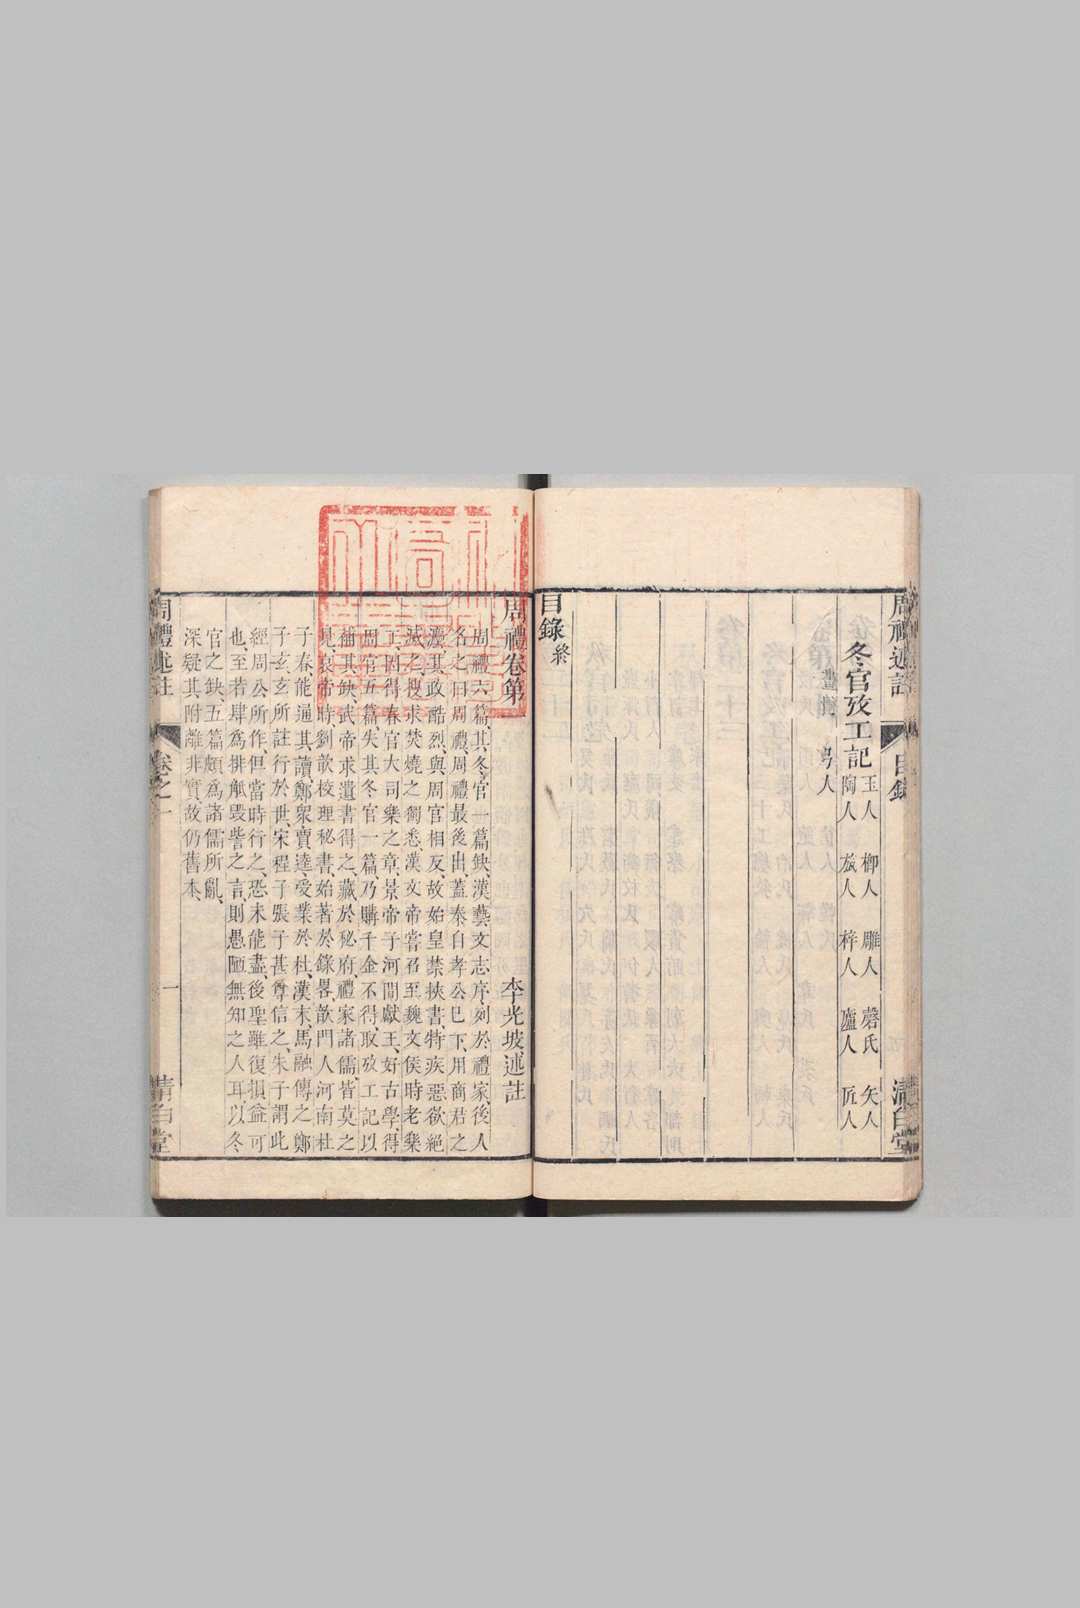 周禮述註
目錄
清白堂
冬官攷工記
玉人 楖人 雕人 磬氏 矢人
陶人 旊人 梓人 廬人 匠人
弓人
目錄終
周禮卷第
李光坡述註
周禮六篇其冬官一篇缺漢藝文志序列於禮家後人
名之曰周禮周禮最後出蓋秦自孝公已下用商君之
灋其政酷烈與周官相反故始皇禁挾書特疾惡欲絕
滅之搜求焚燒之獨悉漢文帝嘗召至魏文侯時老樂
工因得春官大司樂之章景帝子河間獻王好古學得
周官五篇失其冬官一篇乃購千金不得取攷工記以
補其缺武帝求遺書得之藏於秘府禮家諸儒皆莫之
見哀帝時劉歆校理秘書始著於錄畧歆門人河南杜
子春能通其讀鄭衆賈逵受業於杜漢末馬融傳之鄭
子玄玄所註行於世宋程子張子甚尊信之朱子謂此
經周公所作但當時行之恐未能盡後聖雖復損益可
也至若肆爲排觝毀訾之言則愚陋無知之人耳以冬
官之缺五篇頗爲諸儒所亂
深疑其附離非實故仍舊本
周禮述註
卷之一
一
清白堂